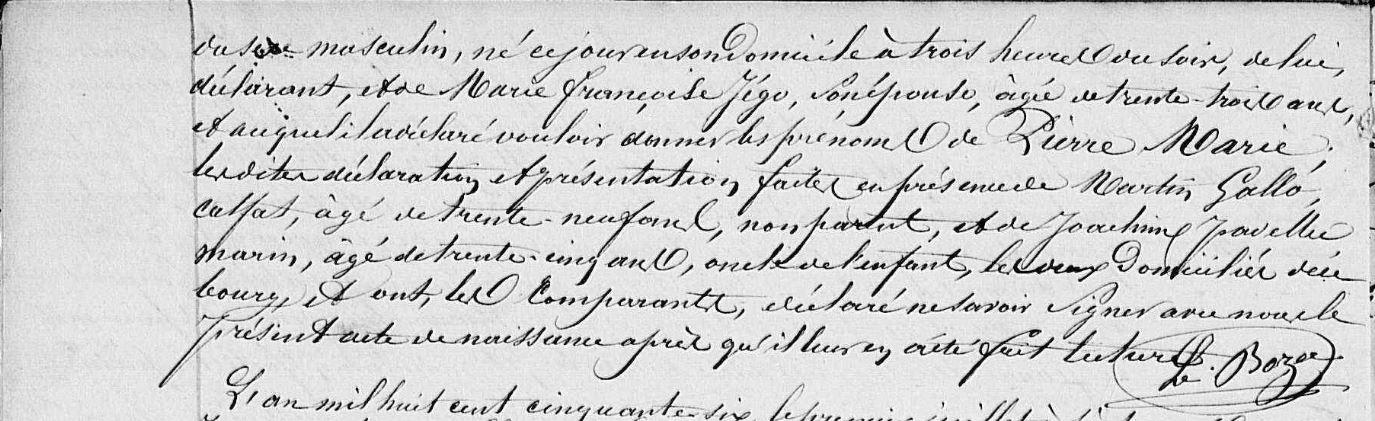 du sexe masculin, né ce jour en son Domicile à trois heures du soir, de lui,
déclarant, et de Marie Françoise Jégo, son épouse, âgée de trente-trois ans,
et auquel il a déclaré vouloir donner les prénoms de Pierre Marie;
lesdites déclaration et présentation faites en présence de Martin Gallo,
calfat, âgé de trente-neuf ans, non parent, et de Joachim
marin, âgé de trente-cinq ans, oncle de l'enfant, les deux Domiciliés de ce
bourg, et ont, les Comparants, déclaré ne savoir signer avec nous le
présent acte de naissance après qu'il leur en a été fait lecture. Le
L'an mil huit cent cinquante-six, le premier juillet à